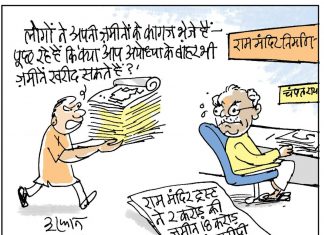 लोगों ने अपनी ज़मीनों के कागज भेजे हैं-
पूछ रहे हैं कि क्या आप अयोध्या के बाहर भी
ज़मीनें खरीद सकते हैं?'
राम मंदिर निर्माण-
चंपतराय
राम मंदिर ट्रस्ट
ने 2 करोड़ की
ज़मीन 18 करोड़